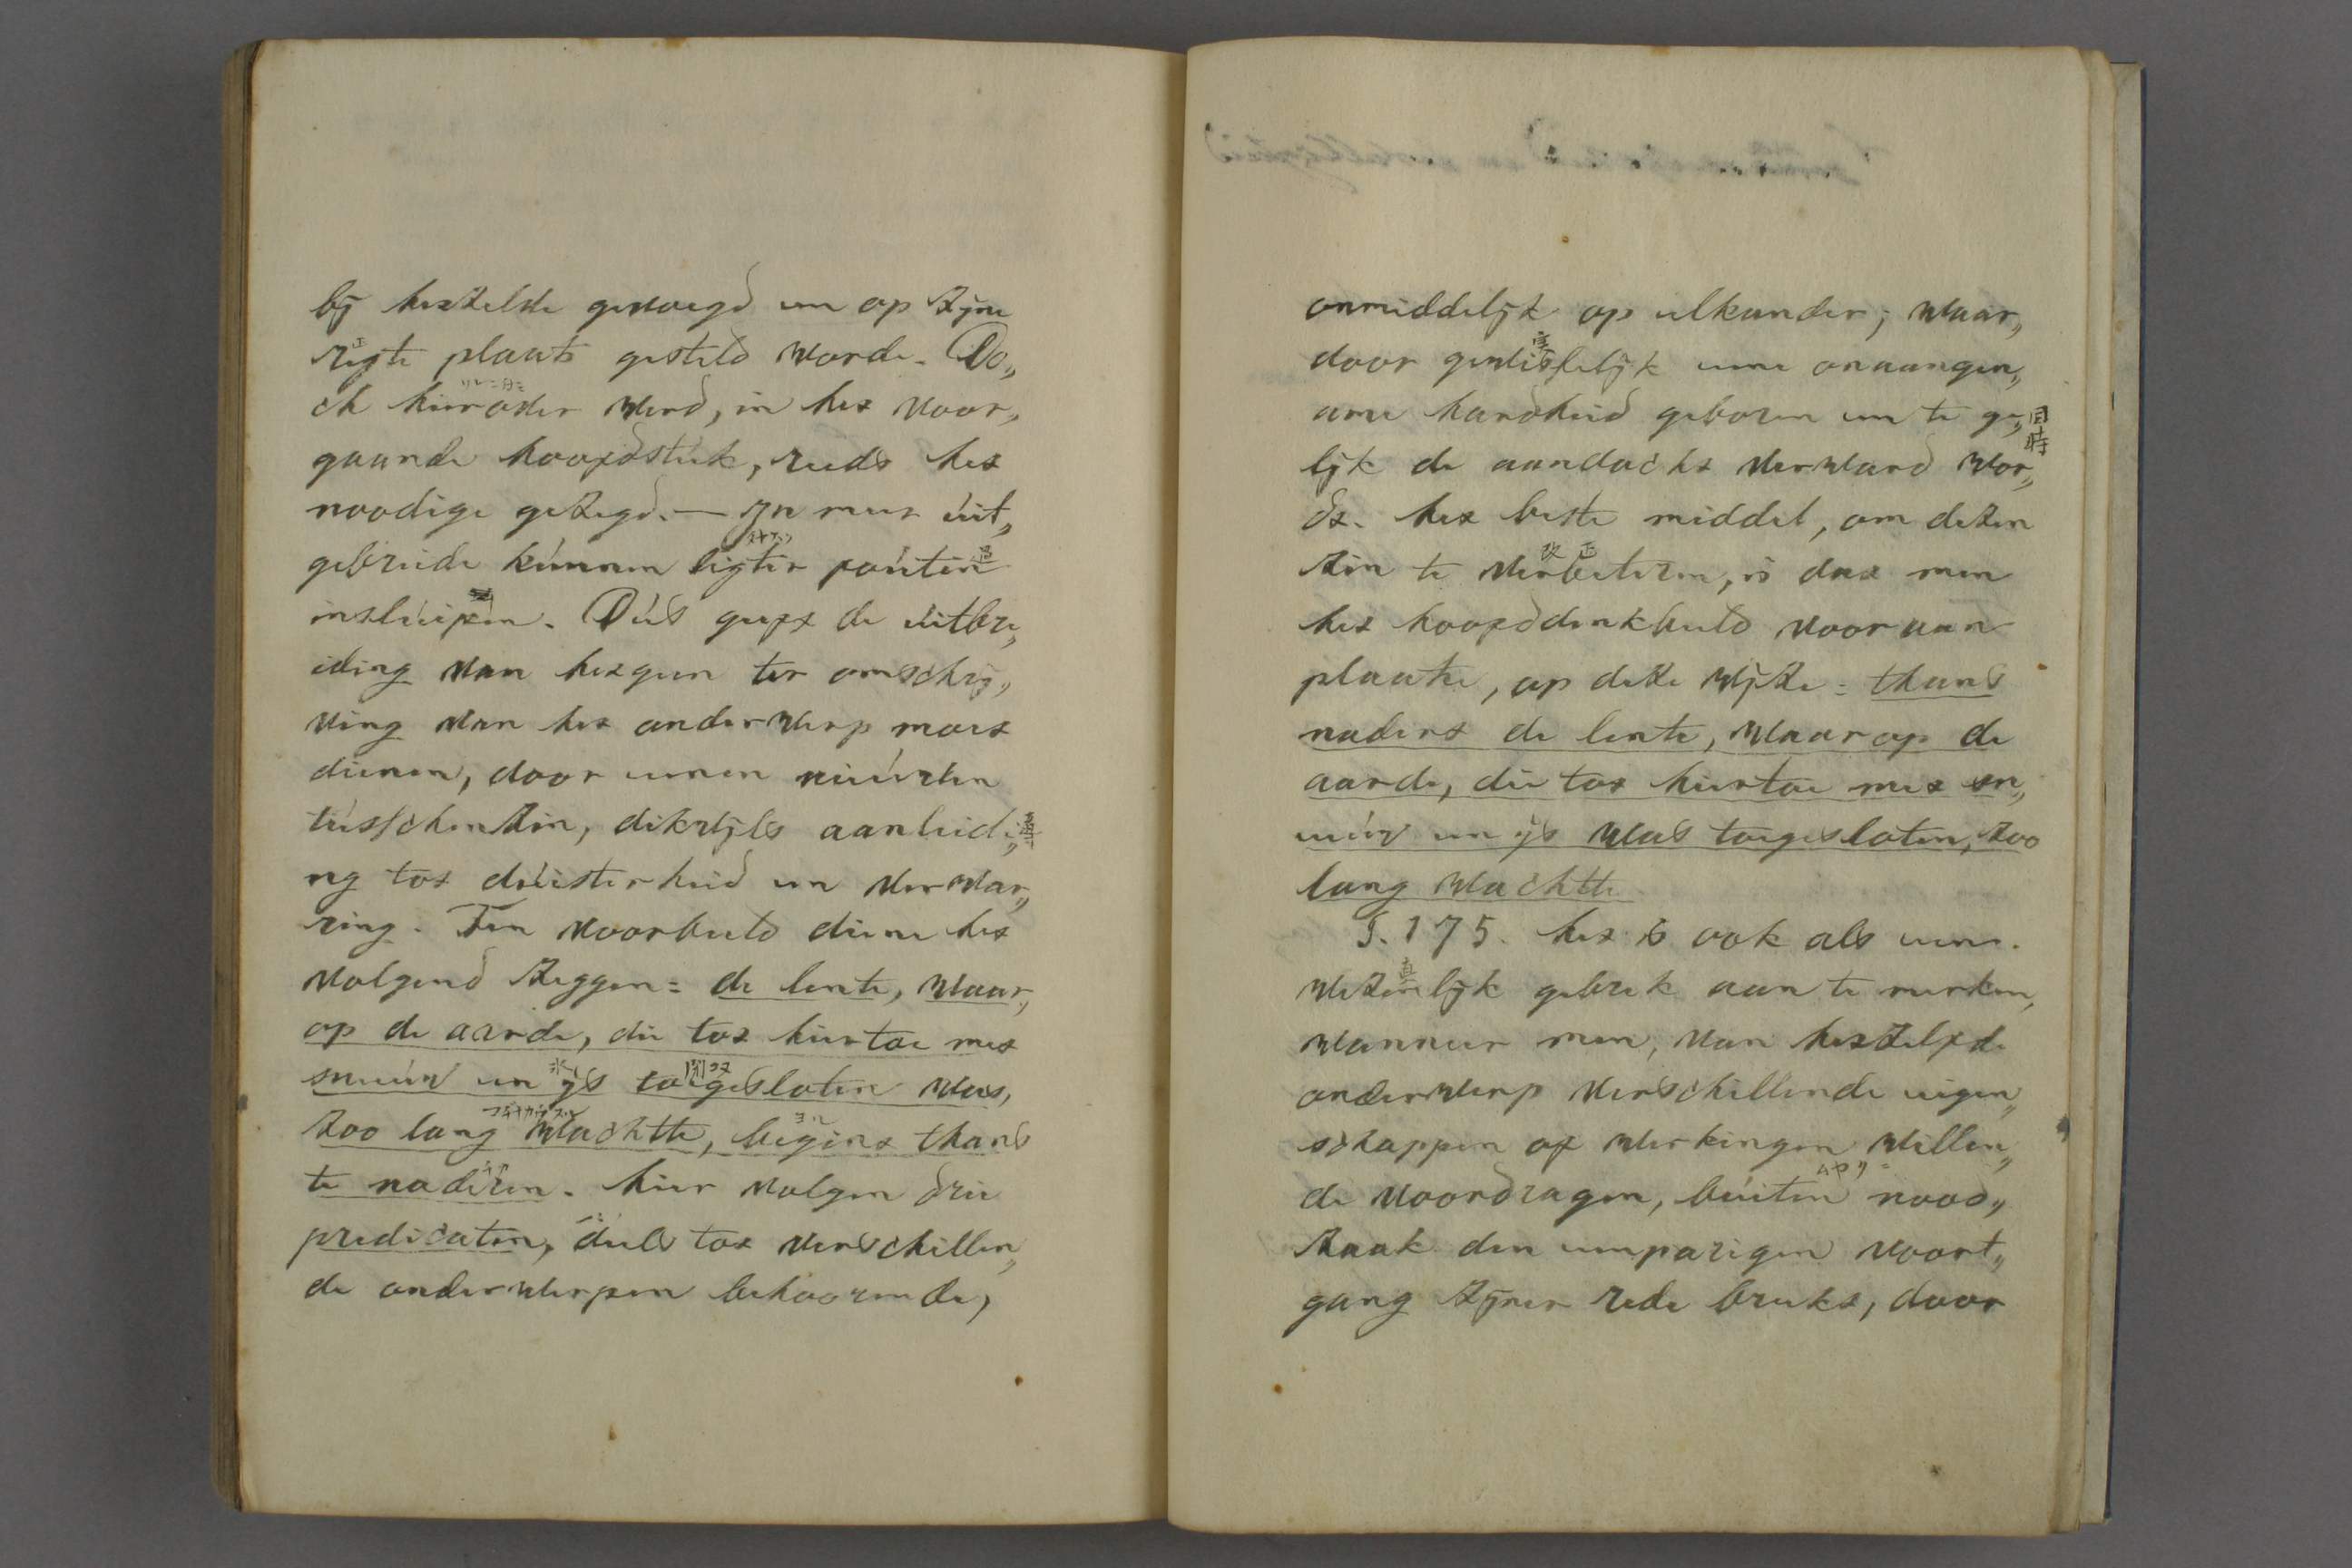 bij hetzelve gevoegd en op zijne
regte plaats gesteld worde. Do„
ch hierover werd, in het voor„
gaande hoofdstuk, reeds het
noodige gezegd. — In meer uit„
gebreide kunnen ligter fouten
insluipen. Dus geeft de uitbre„
iding van hetgeen ter omschrij„
ving van het onderwerp moet
dienen, door eenen nieuwen
tusschenzin, dikwijls aanleidi„
ng tot duisterheid en verwar„
ring. Ten voorbeeld diene het
volgend zeggen: de lente, waar„
op de aarde, die tot hiertoe met
sneeuw en ijs toegesloten was,
zoo lang wachtte, begint thans
te naderen. hier volgen drie
predicaten, deels tot verschillen„
de onderwerpen behoorende,
onmiddelijk op elkander; waar„
door gewisselijk eene onaangen„
ame hardheid geboren en te ge„
lijk de aandacht verward wor„
dt. het beste middel, om dezen
zin te verbeteren, is dat men
het hoofddenkbeeld vooraan
plaatse, op deze wijze: thans
nadert de lente, waarop de
aarde, die tot hiertoe met sn„
eeuw en ijs was toegesloten, zoo
lang wachtte
§. 175. het is ook als een
wezenlijk gebrek aan te merken,
wanneer men, van hetzelfde
onderwerp verschillende eigen„
schappen of werkingen willen„
de voordragen, buiten nood„
zaak den eenparigen voort„
gang zijner rede breekt, door